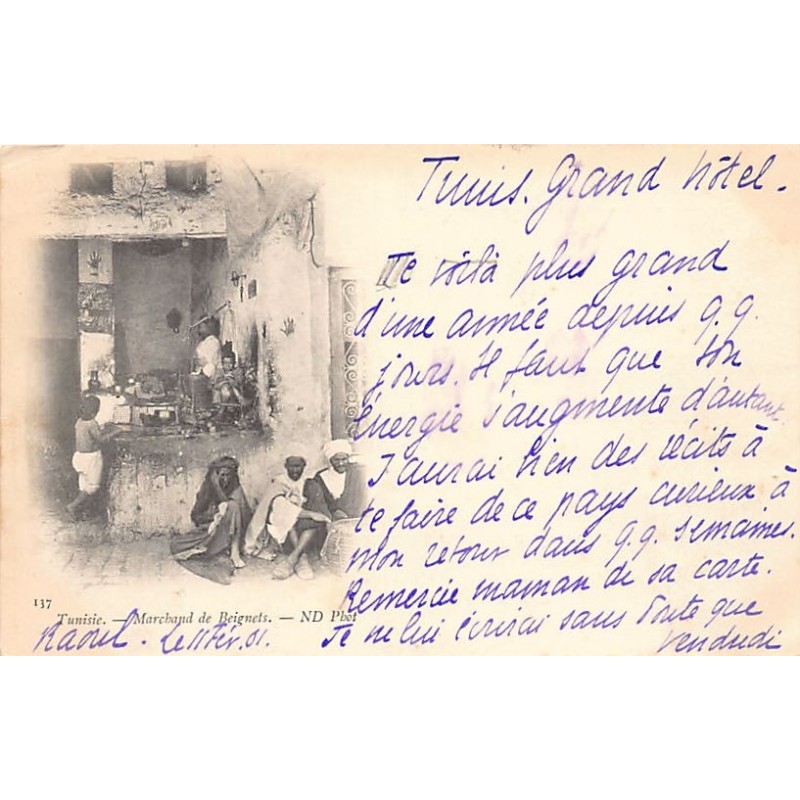 Tunis. Grand hôtel.
Te voilà plus grand
d'une année depuis q.q.
jours. Il faut que ton
énergie s'augmente d'autant.
J'aurai bien des récits à
te faire de ce pays curieux à
mon retour dans q.q. semaines.
Remercie maman de sa carte.
Je ne lui écrirai sans doute que
vendredi
137
Tunisie. — Marchand de Beignets. — ND Phot
Raoul. Le 11 Fév. 01.